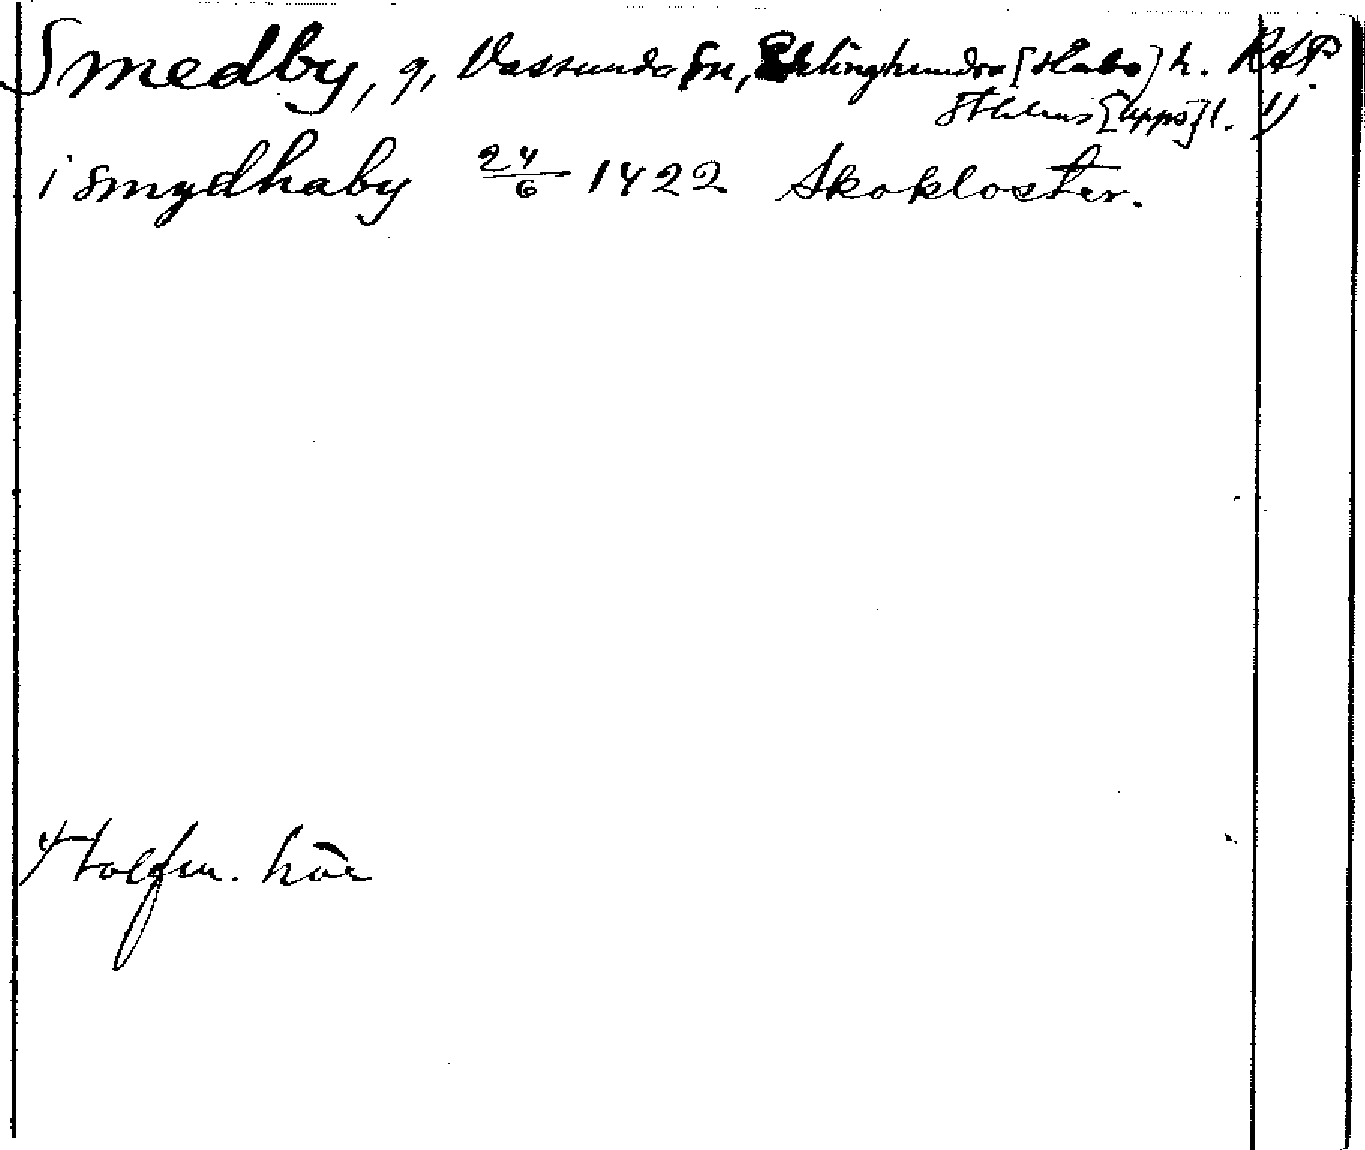 Smedby, g, Vassunda sn, Ärlinghundra [Habo] h. RAP
Sthlms [Upps] l.
i smydhaby 24/6 1422 Skokloster.